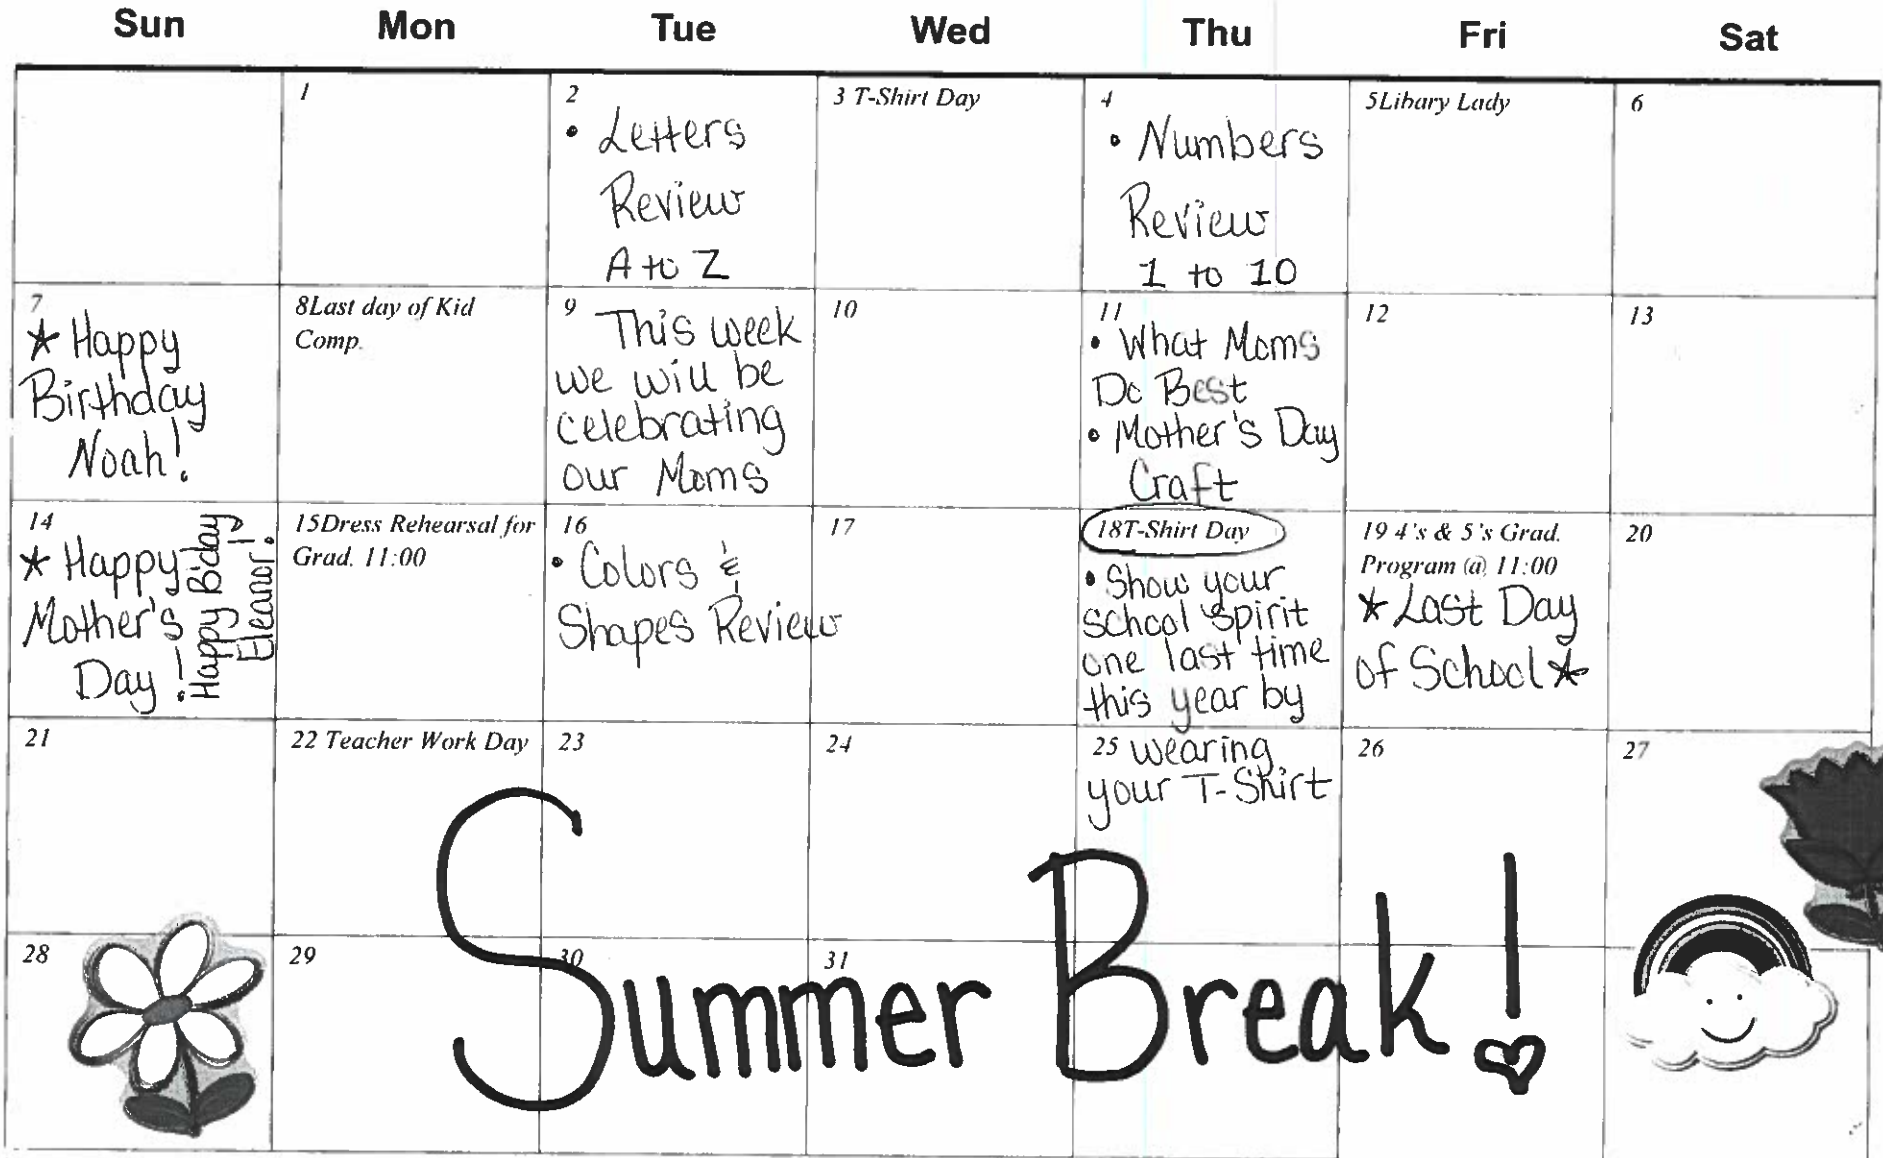 Sun Mon Tue Wed Thu Fri Sat
1
2
• Letters
Review
A to Z
3 T-Shirt Day
4
• Numbers
Review
1 to 10
5Libary Lady
6
7
* Happy
Birthday
Noah!
8Last day of Kid
Comp.
9
This week
we will be
celebrating
our Moms
10
11
• What Moms
Do Best
• Mother's Day
Craft
12
13
14
* Happy
Mother's
Day!
Happy B'day
Eleanor!
15Dress Rehearsal for
Grad. 11:00
16
• Colors &
Shapes Review
17
18T-Shirt Day
• Show your
school spirit
one last time
this year by
19 4's & 5's Grad.
Program @ 11:00
* Last Day
of School *
20
21
22 Teacher Work Day
23
24
25 wearing
your T-Shirt
26
27
28
29
30
31
Summer Break!